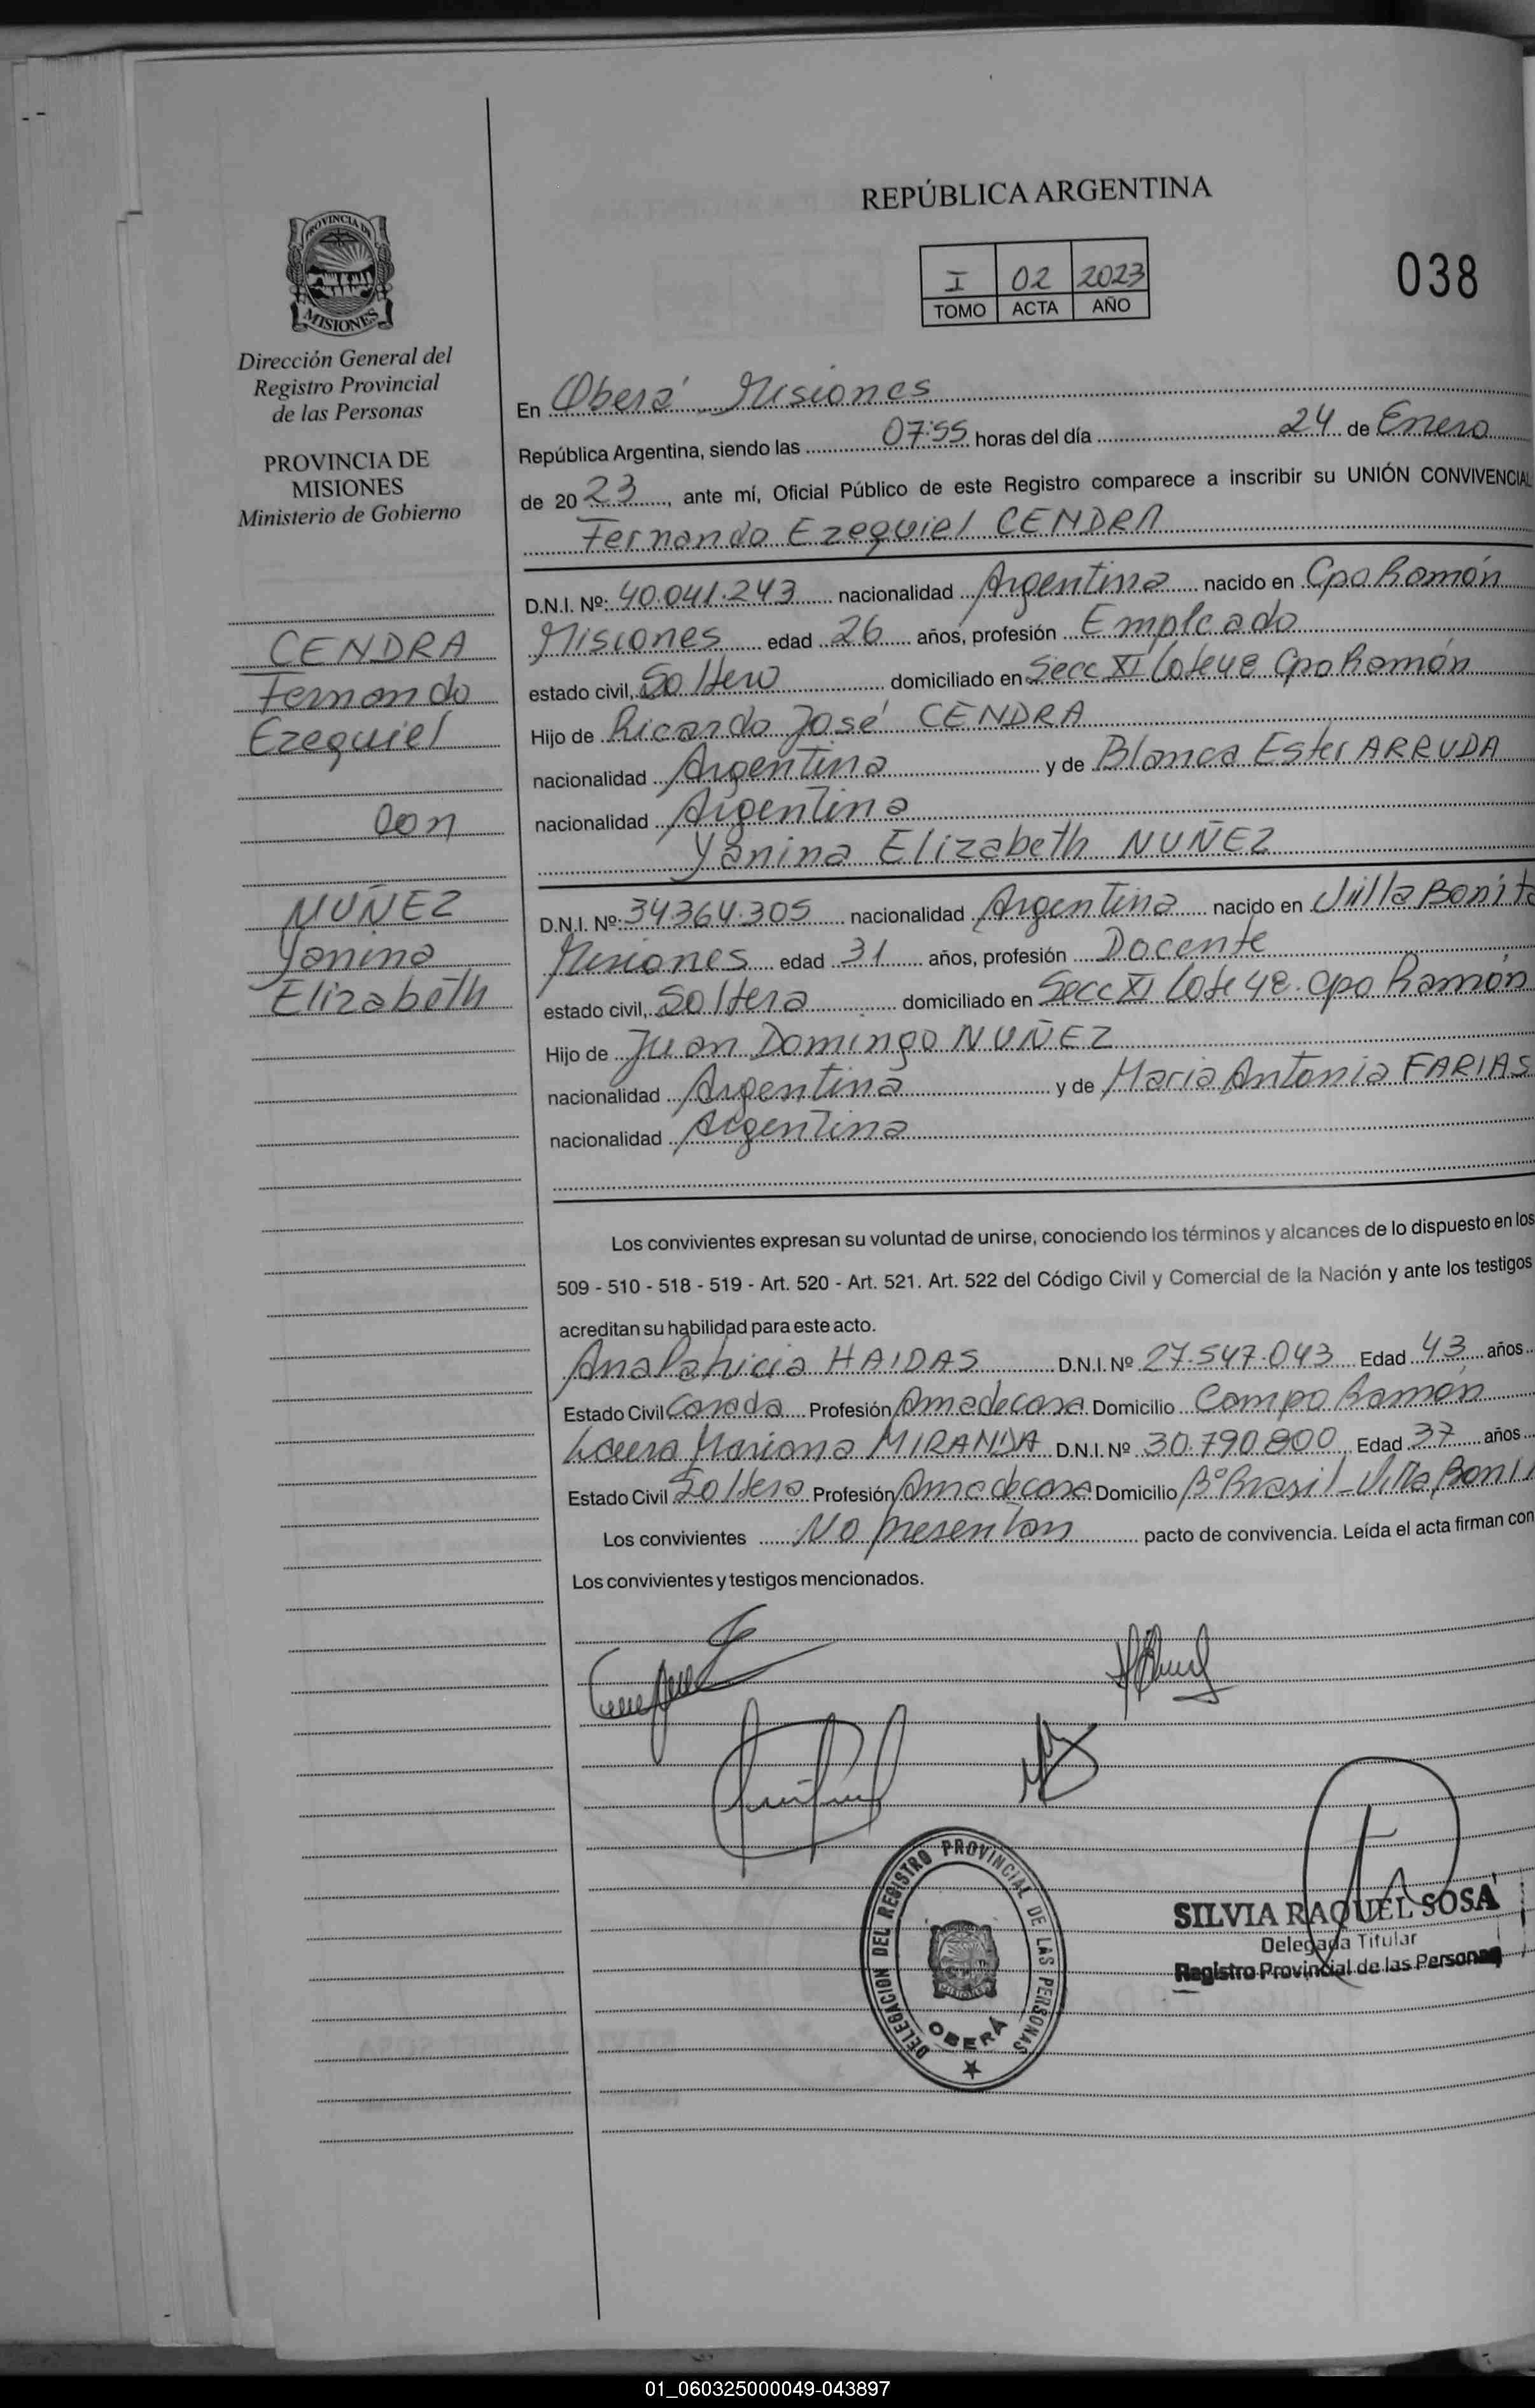 REPÚBLICA ARGENTINA
I 02 2023
TOMO ACTA AÑO
038
PROVINCIA DE
MISIONES
Dirección General del
Registro Provincial
de las Personas
PROVINCIA DE
MISIONES
Ministerio de Gobierno
CENDRA
Fernando
Ezequiel
Con
NUÑEZ
Yanina
Elizabeth
En Oberá Misiones
República Argentina, siendo las 07:55 horas del día 24 de Enero
de 2023, ante mí, Oficial Público de este Registro comparece a inscribir su UNIÓN CONVIVENCIAL
Fernando Ezequiel CENDRA
D.N.I. Nº: 40.041.243 nacionalidad Argentina nacido en Cpo Ramón
Misiones edad 26 años, profesión Empleado
estado civil, Soltero domiciliado en Secc XI Lote 48 Cpo Ramón
Hijo de Ricardo José CENDRA
nacionalidad Argentina y de Blanca Ester ARRUDA
nacionalidad Argentina
Yanina Elizabeth NUÑEZ
D.N.I. Nº: 34.364.305 nacionalidad Argentina nacido en Villa Bonita
Misiones edad 31 años, profesión Docente
estado civil, Soltera domiciliado en Secc XI Lote 48. Cpo Ramón
Hijo de Juan Domingo NUÑEZ
nacionalidad Argentina y de Maria Antonia FARIAS
nacionalidad Argentina
Los convivientes expresan su voluntad de unirse, conociendo los términos y alcances de lo dispuesto en los
509 - 510 - 518 - 519 - Art. 520 - Art. 521. Art. 522 del Código Civil y Comercial de la Nación y ante los testigos
acreditan su habilidad para este acto.
Ana Patricia HAIDAS D.N.I. Nº 27.547.043 Edad 43 años
Estado Civil Casada Profesión Ama de casa Domicilio Campo Ramón
Laura Mariana MIRANDA D.N.I. Nº 30.790.800 Edad 37 años
Estado Civil Soltera Profesión Ama de casa Domicilio Bº Brasil - Villa Boni
Los convivientes No presentan pacto de convivencia. Leída el acta firman con
Los convivientes y testigos mencionados.
DELEGACION DEL REGISTRO PROVINCIAL DE LAS PERSONAS
OBERÁ
SILVIA RAQUEL SOSA
Delegada Titular
Registro Provincial de las Personas
01_060325000049-043897